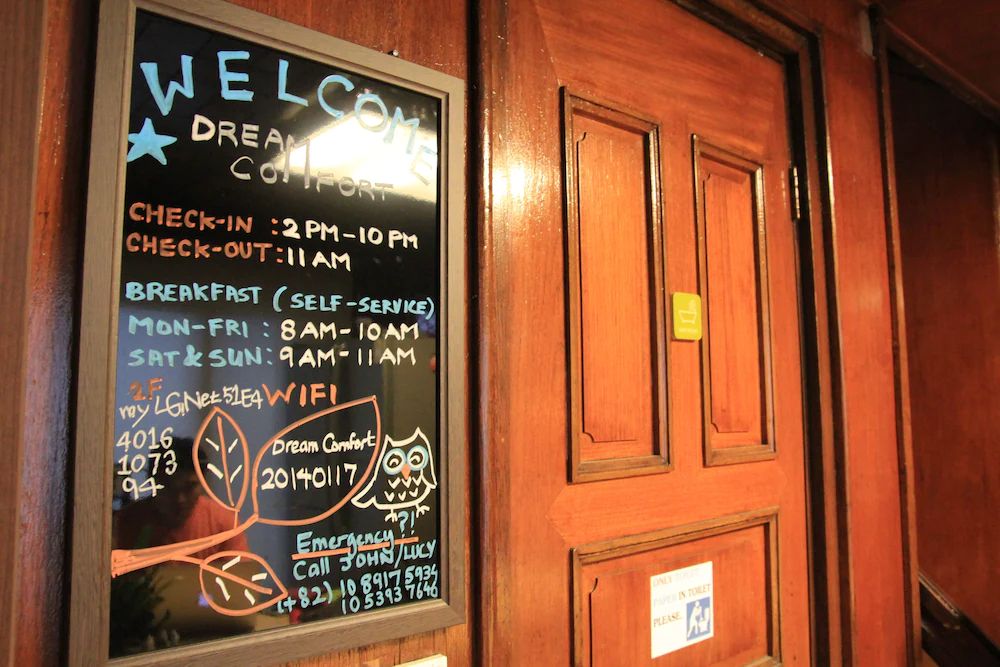 WELCOME
DREAM
COMFORT
CHECK-IN : 2 PM-10 PM
CHECK-OUT : 11 AM
BREAKFAST (SELF-SERVICE)
MON-FRI : 8 AM-10 AM
SAT & SUN: 9 AM-11 AM
2F
WIFI
myLGNet51E4
4016
1073
94
Dream Comfort
20140117
?!
Emergency
Call JOHN/LUCY
(+82) 10 8917 5934
10 5393 7640
ONLY TOILET
PAPER IN TOILET
PLEASE.